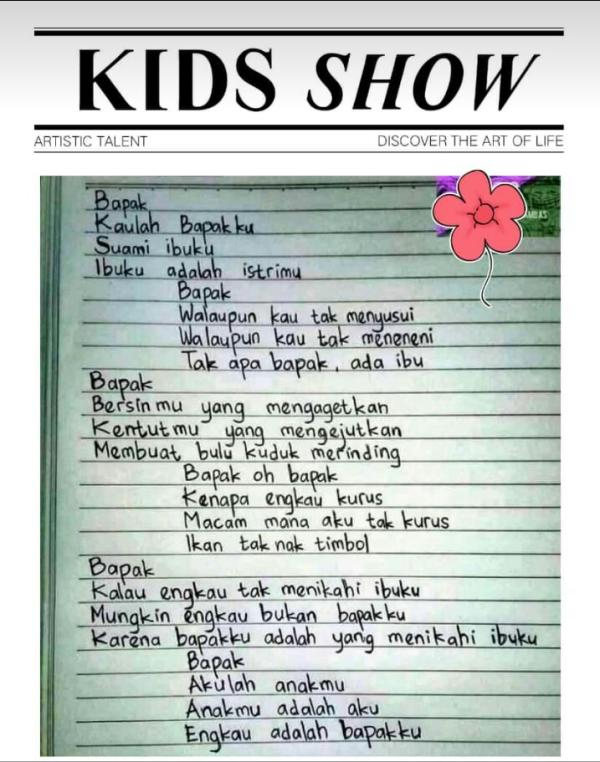 KIDS SHOW
ARTISTIC TALENT
DISCOVER THE ART OF LIFE
Bapak
Kaulah Bapakku
Suami ibuku
Ibuku adalah istrimu
Bapak
Walaupun kau tak menyusui
Walaupun kau tak meneneni
Tak apa bapak, ada ibu
Bapak
Bersinmu yang mengagetkan
Kentutmu yang mengejutkan
Membuat bulu kuduk merinding
Bapak oh bapak
Kenapa engkau kurus
Macam mana aku tak kurus
Ikan tak nak timbol
Bapak
Kalau engkau tak menikahi ibuku
Mungkin engkau bukan bapakku
Karena bapakku adalah yang menikahi ibuku
Bapak
Akulah anakmu
Anakmu adalah aku
Engkau adalah bapakku